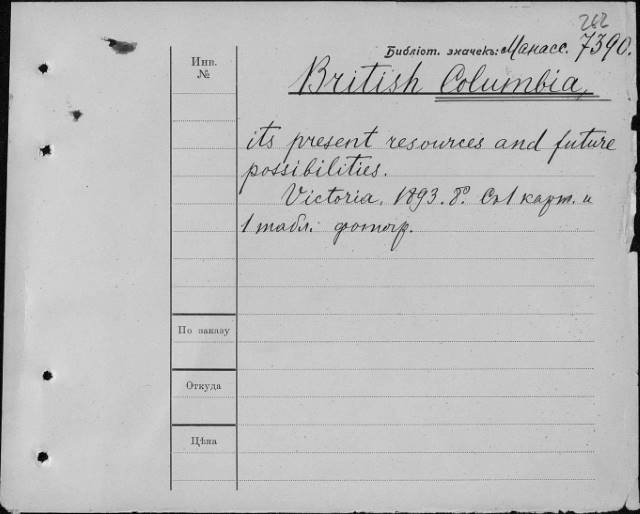 262
Библіот. значекъ: Манасс. 7390.
Инв.
№
British Columbia,
its present resources and future
possibilities.
Victoria. 1893. 8°. Съ 1 карт. и
1 табл. фотогр.
По заказу
Откуда
Цѣна